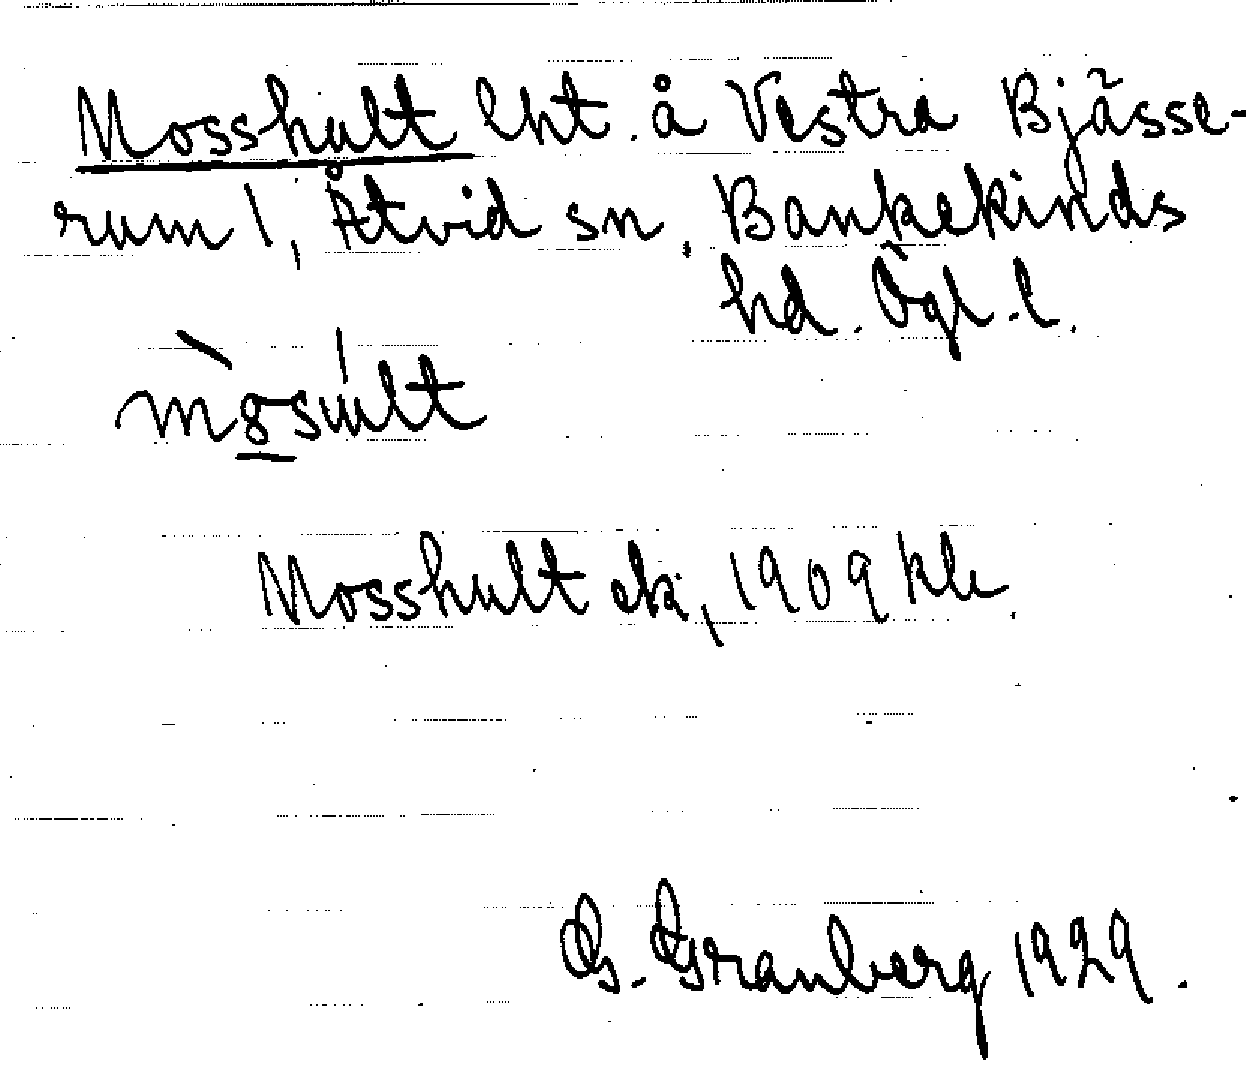 Mosshult lht. å Vestra Bjässe-
rum 1, Åtvid sn, Bankekinds
hd. Ögl. l.
Mosshult ek, 1909 kk
G. Granberg 1929.